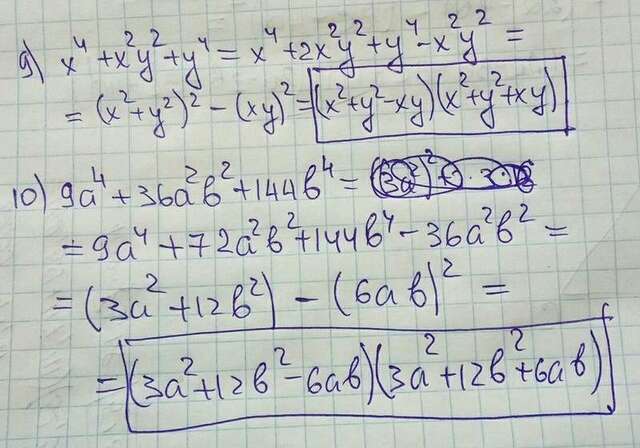 9) x⁴ + x²y² + y⁴ = x⁴ + 2x²y² + y⁴ - x²y² =
= (x² + y²)² - (xy)² = (x² + y² - xy)(x² + y² + xy)
10) 9a⁴ + 36a²b² + 144b⁴ =
= 9a⁴ + 72a²b² + 144b⁴ - 36a²b² =
= (3a² + 12b²) - (6ab)² =
= (3a² + 12b² - 6ab)(3a² + 12b² + 6ab)